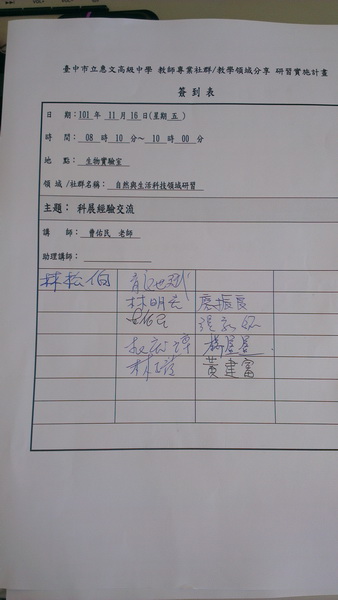 臺中市立惠文高級中學 教師專業社群/教學領域分享 研習實施計畫
簽 到 表
日　期：101 年 11 月 16 日(星期 五 )
時　間： 08 時 10 分～ 10 時 00 分
地　點： 生物實驗室
領 域 /社群名稱： 自然與生活科技領域研習
主題： 科展經驗交流
講　師： 曹佑民 老師
助理講師：
林松伯
廖振良
黃建富